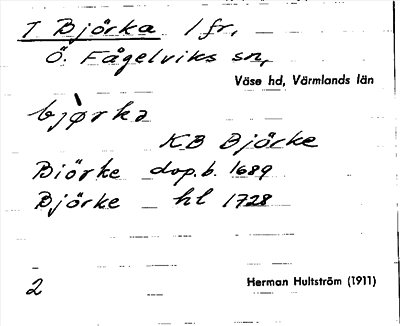 T Björka 1 fr.
Ö. Fågelviks sn,
Väse hd, Värmlands län
bjø̀rka
KB Björke
Biörke dop.b. 1689
Björke hl 1728
2
Herman Hultström (1911)